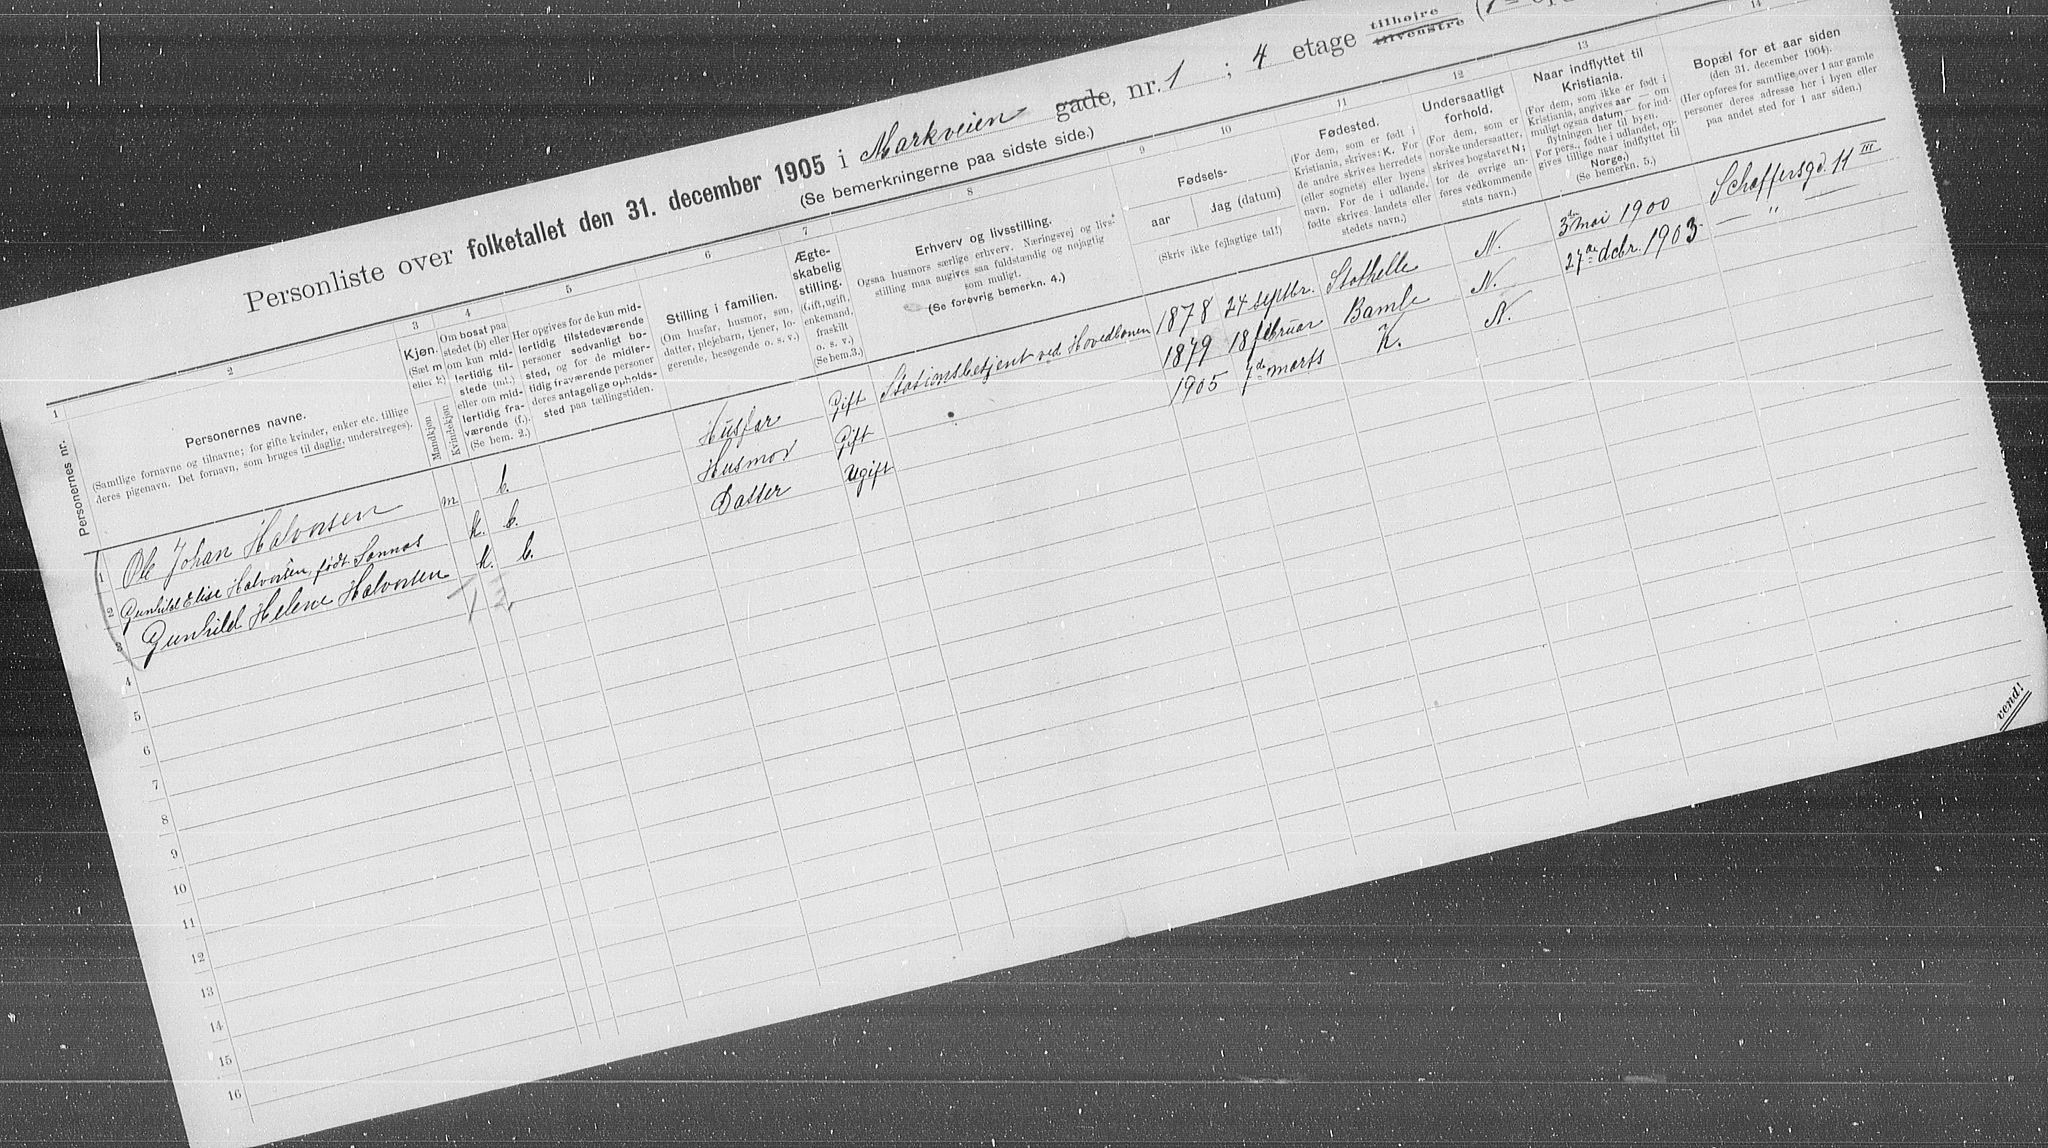 Personliste over folketallet den 31. december 1905 i Markveien gade, nr. 1 ; 4 etage tilhøire tilvenstre
(Se bemerkningerne paa sidste side.)
1 2 3 4 5 6 7 8 9 10 11 12 13 14
Personernes nr.
Personernes navne.
(Samtlige fornavne og tilnavne; for gifte kvinder, enker etc. tillige
deres pigenavn. Det fornavn, som bruges til daglig, understreges).
Kjøn.
(Sæt m
eller k)
Mandkjøn
Kvindekjøn
Om bosat paa
stedet (b) eller
om kun mid-
lertidig til-
stede (mt.)
eller om mid-
lertidig fra-
værende (f.).
(Se bem. 2.)
Her opgives for de kun mid-
lertidig tilstedeværende
personer sedvanligt bo-
sted, og for de midler-
tidig fraværende personer
deres antagelige opholds-
sted paa tællingstiden.
Stilling i familien.
(Om husfar, husmor, søn,
datter, plejebarn, tjener, lo-
gerende, besøgende o. s. v.)
Ægte-
skabelig
stilling.
(Gift, ugift,
enkemand,
fraskilt
o. s. v.)
(Se bem.3.)
Erhverv og livsstilling.
Ogsaa husmors særlige erhverv. Næringsvej og livs-
stilling maa angives saa fuldstændig og nøjagtig
som muligt.
(Se forøvrig bemerkn. 4.)
Fødsels-
aar
dag (datum)
(Skriv ikke fejlagtige tal!)
Fødested.
(For dem, som er født i
Kristiania, skrives: K. For
de andre skrives herredets
(eller sognets) eller byens
navn. For de i udlande.
fødte skrives landets eller
stedets navn.)
Undersaatligt
forhold.
(For dem, som er
norske undersaatter,
skrives bogstavet N;
for de øvrige an-
føres vedkommende
stats navn.)
Naar indflyttet til
Kristiania.
(For dem, som ikke er født i
Kristiania, angives aar — om
muligt ogsaa datum — for ind-
flytningen her til byen.
For pers., fødte i udlandet, op-
gives tillige naar indflyttet til
Norge.)
(Se bemerkn. 5.)
Bopæl for et aar siden
(den 31. december 1904).
(Her opføres for samtlige over 1 aar gamle
personer deres adresse her i byen eller
paa andet sted for 1 aar siden.)
1 Ole Johan Halvorsen m b. Husfar Gift Stationsbetjent ved Hovedbanen 1878 24 septbr. Stathelle N. 3die mai 1900 Schæffersgd. 11 III
2 Gunhild Elise Halvorsen, født Sannas k. b. Husmor Gift 1879 18 februar Bamle N. 27de dcbr. 1903. — " —
3 Gunhild Helene Halvorsen k. b. Datter Ugift 1905 7de marts K. N.
4
5
6
7
8
9
10
11
12
13
14
15
16
vend!